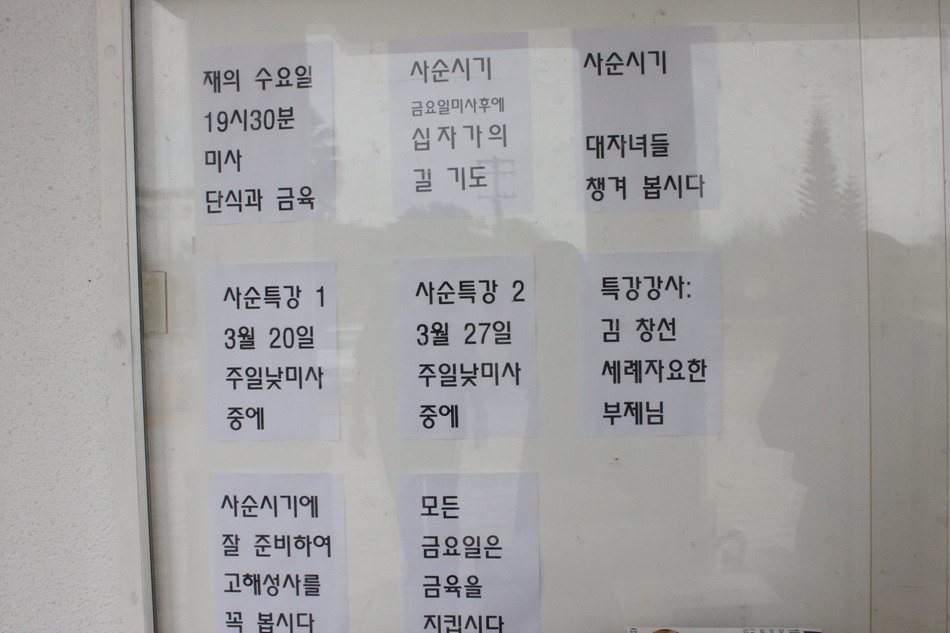 재의 수요일
19시30분
미사
단식과 금육
사순시기
금요일미사후에
십자가의
길 기도
사순시기
대자녀들
챙겨 봅시다
사순특강 1
3월 20일
주일낮미사
중에
사순특강 2
3월 27일
주일낮미사
중에
특강강사:
김 창선
세례자요한
부제님
사순시기에
잘 준비하여
고해성사를
꼭 봅시다
모든
금요일은
금육을
지킵시다